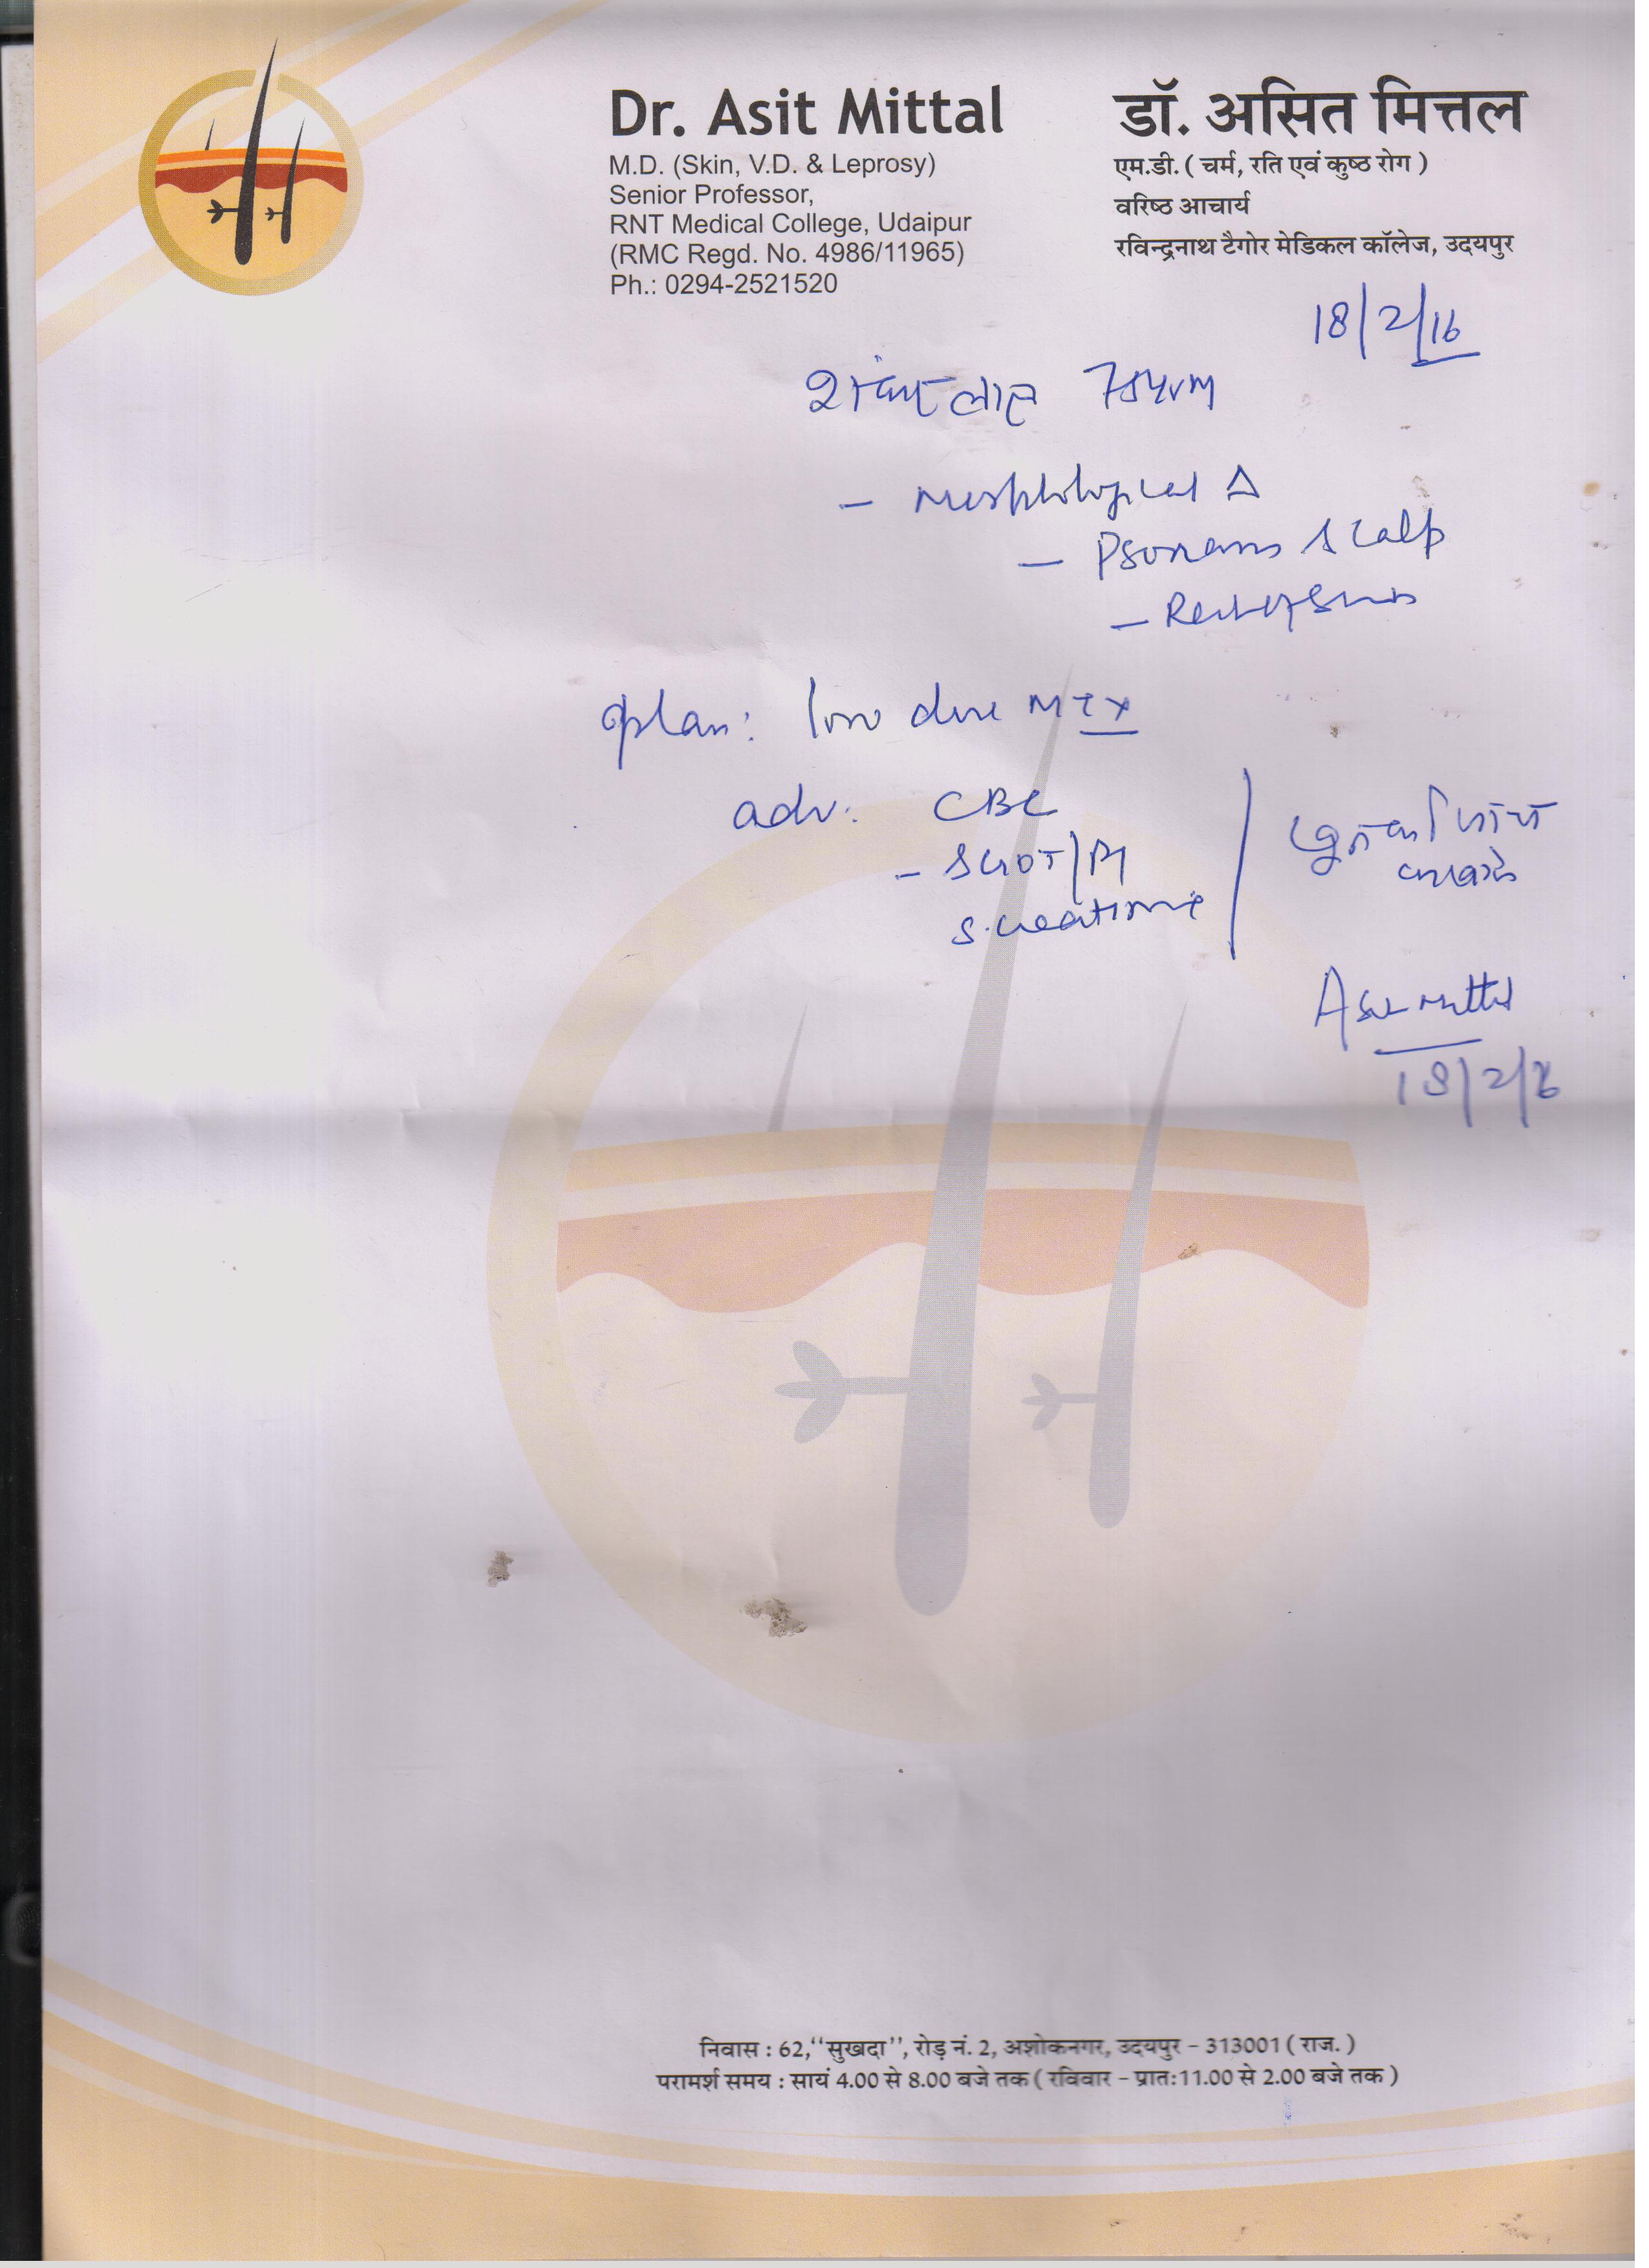 Dr. Asit Mittal
M.D. (Skin, V.D. & Leprosy)
Senior Professor,
RNT Medical College, Udaipur
(RMC Regd. No. 4986/11965)
Ph.: 0294-2521520
डॉ. असित मित्तल
एम.डी. ( चर्म, रति एवं कुष्ठ रोग )
वरिष्ठ आचार्य
रविन्द्रनाथ टैगोर मेडिकल कॉलेज, उदयपुर
18/2/16
शंकरलाल
- Morphological Δ
- Psoriasis scalp
plan: low dose MTX
adv: CBC
- SGOT/PT
S. creatinine
खून की जांच
करावें
Asit Mittal
18/2/16
निवास : 62,‘‘सुखदा’’, रोड़ नं. 2, अशोकनगर, उदयपुर - 313001 ( राज. )
परामर्श समय : सायं 4.00 से 8.00 बजे तक ( रविवार - प्रातः11.00 से 2.00 बजे तक )